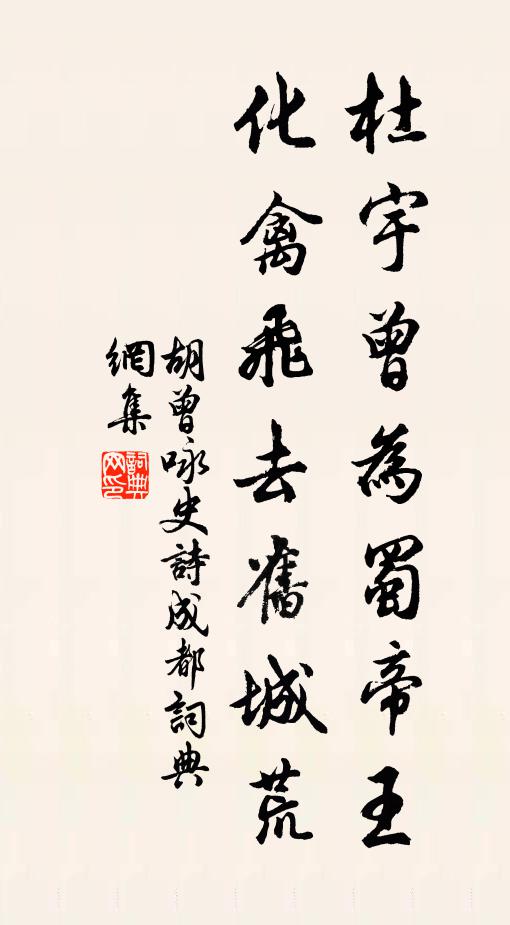 杜宇曾為蜀帝王
化禽飛去舊城荒
胡曾咏史詩成都詞典
網集
詞典網印